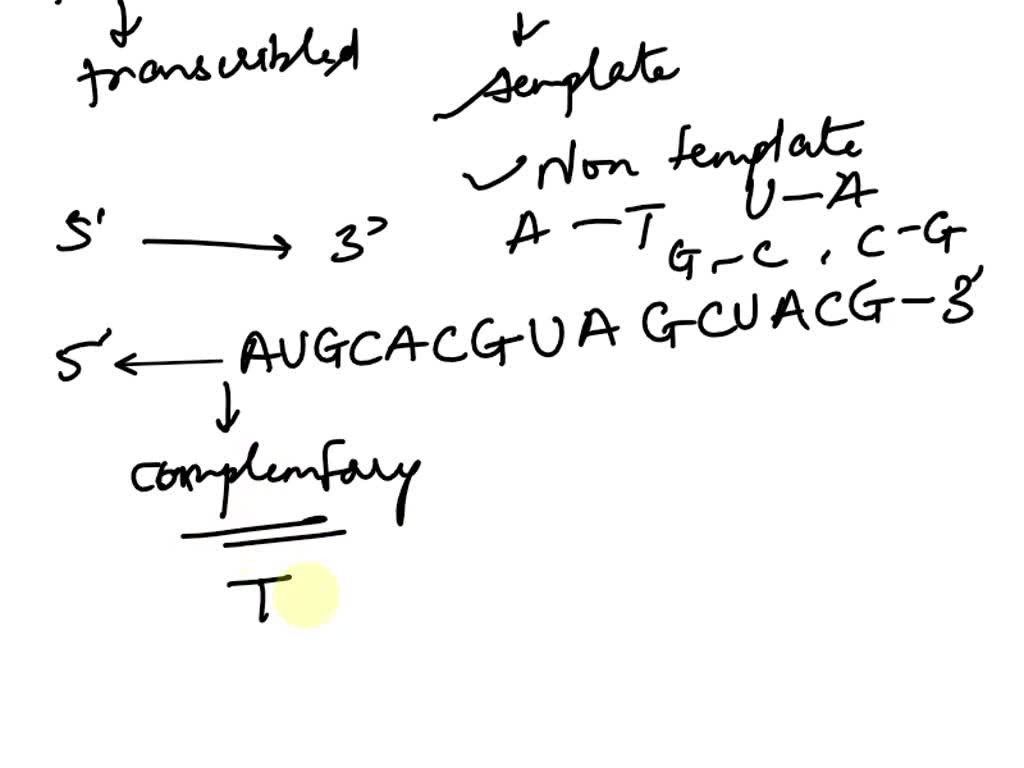 ↓ ↓
transcribbed template
✓ Non template
5' → 3' A – T U – A
G – C , C – G
5' ← AUGCACGUAGCUACG – 3'
↓
complementary
T